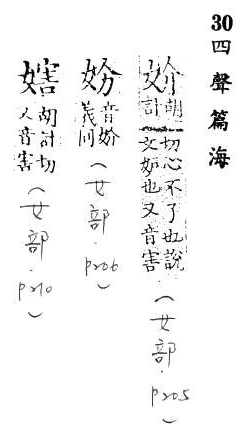 30 四聲篇海
妎 胡計切心不了也說文妬也又音害（女部．P205）
音妎義同（女部．P206）
胡計切又音害（女部．P210）